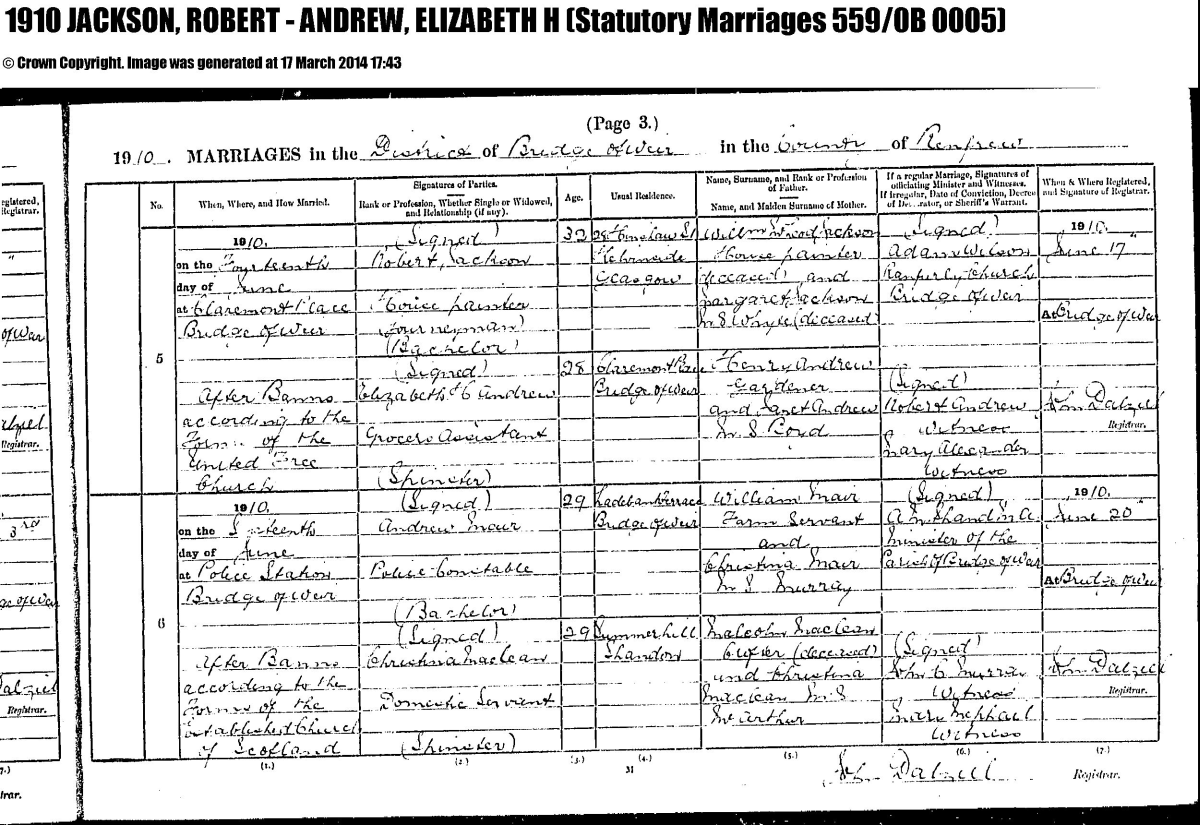 1910 JACKSON, ROBERT - ANDREW, ELIZABETH H (Statutory Marriages 559/0B 0005)
© Crown Copyright. Image was generated at 17 March 2014 17:43
(Page 3.)
1910. MARRIAGES in the District of Bridge of Weir in the County of Renfrew
No.
When, Where, and How Married.
Signatures of Parties.
Rank or Profession, Whether Single or Widowed,
and Relationship (if any).
Age.
Usual Residence.
Name, Surname, and Rank or Profession
of Father.
Name, and Maiden Surname of Mother.
If a regular Marriage, Signatures of
officiating Minister and Witnesses.
If irregular, Date of Conviction, Decree
of Declarator, or Sheriff's Warrant.
When & Where Registered,
and Signature of Registrar.
5
1910.
on the Fourteenth
day of June
at Claremont Place
Bridge of Weir
After Banns
according to the
Forms of the
United Free
Church
(Signed)
Robert Jackson
House painter
(Journeyman)
(Bachelor)
(Signed)
Elizabeth H Andrew
Grocers Assistant
(Spinster)
32
28
Glasgow
Claremont Place
Bridge of Weir
William Wood Jackson
House painter
(deceased) and
Margaret Jackson
M.S Whyte (deceased
Henry Andrew
Gardener
and Janet Andrew
M S Boyd
(Signed)
Adam Wilson
Ranfurly Church
Bridge of Weir
(Signed)
Robert Andrew
Witness
Mary Alexander
Witness
1910.
June 17"
At Bridge of Weir
Jhn Dalziel
Registrar.
6
1910.
on the Sixteenth
day of June
at Police Station
Bridge of Weir
After Banns
according to the
Forms of the
Established Church
of Scotland
(Signed)
Andrew Mair
Police Constable
(Bachelor)
(Signed)
Christina Maclean
Domestic Servant
(Spinster)
29
29
Bridge of Weir
Summerhill
Shandon
William Mair
Farm Servant
and
Christina Mair
M S Murray
Malcolm Maclean
(deceased)
and Christina
Maclean M.S
McArthur
(Signed)
Minister of the
Parish of Bridge of Weir
(Signed)
John C Murray
Witness
Mary McPhail
Witness
1910.
June 20"
At Bridge of Weir
Jhn Dalziel
Registrar.
(1.)
(2.)
(3.)
(4.)
(5.)
(6.)
(7.)
31
Jhn Dalziel
Registrar.